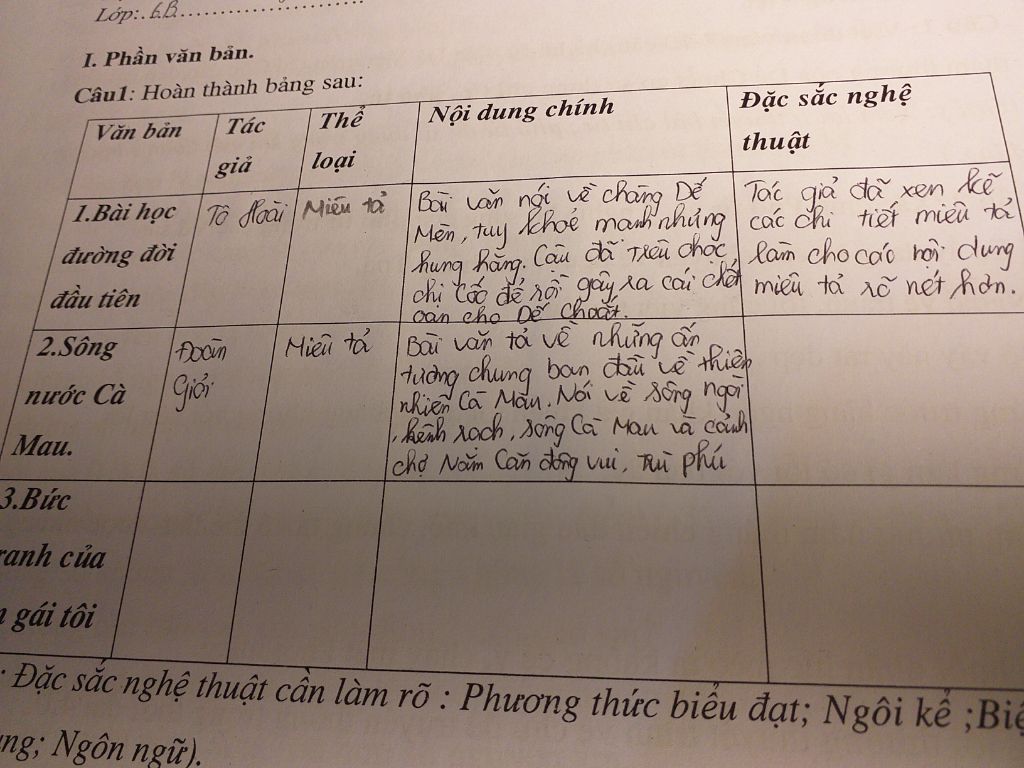 Lớp: 6B
I. Phần văn bản.
Câu1: Hoàn thành bảng sau:
Văn bản
Tác
giả
Thể
loại
Nội dung chính
Đặc sắc nghệ
thuật
1.Bài học
đường đời
đầu tiên
Tô Hoài
Miêu tả
Bài văn nói về chàng Dế
Mèn, tuy khoẻ mạnh nhưng
hung hăng. Cậu đã trêu chọc
chị Cốc để rồi gây ra cái chết
oan cho Dế Choắt.
Tác giả đã xen kẽ
các chi tiết miêu tả
làm cho các nội dung
miêu tả rõ nét hơn.
2.Sông
nước Cà
Mau.
Đoàn
Giỏi
Miêu tả
Bài văn tả về những ấn
tượng chung ban đầu về thiên
nhiên Cà Mau. Nói về sông ngòi
, kênh rạch, sông Cà Mau và cảnh
chợ Năm Căn đông vui, trù phú
3.Bức
ranh của
gái tôi
Đặc sắc nghệ thuật cần làm rõ : Phương thức biểu đạt; Ngôi kể ;Biệ
ng; Ngôn ngữ).